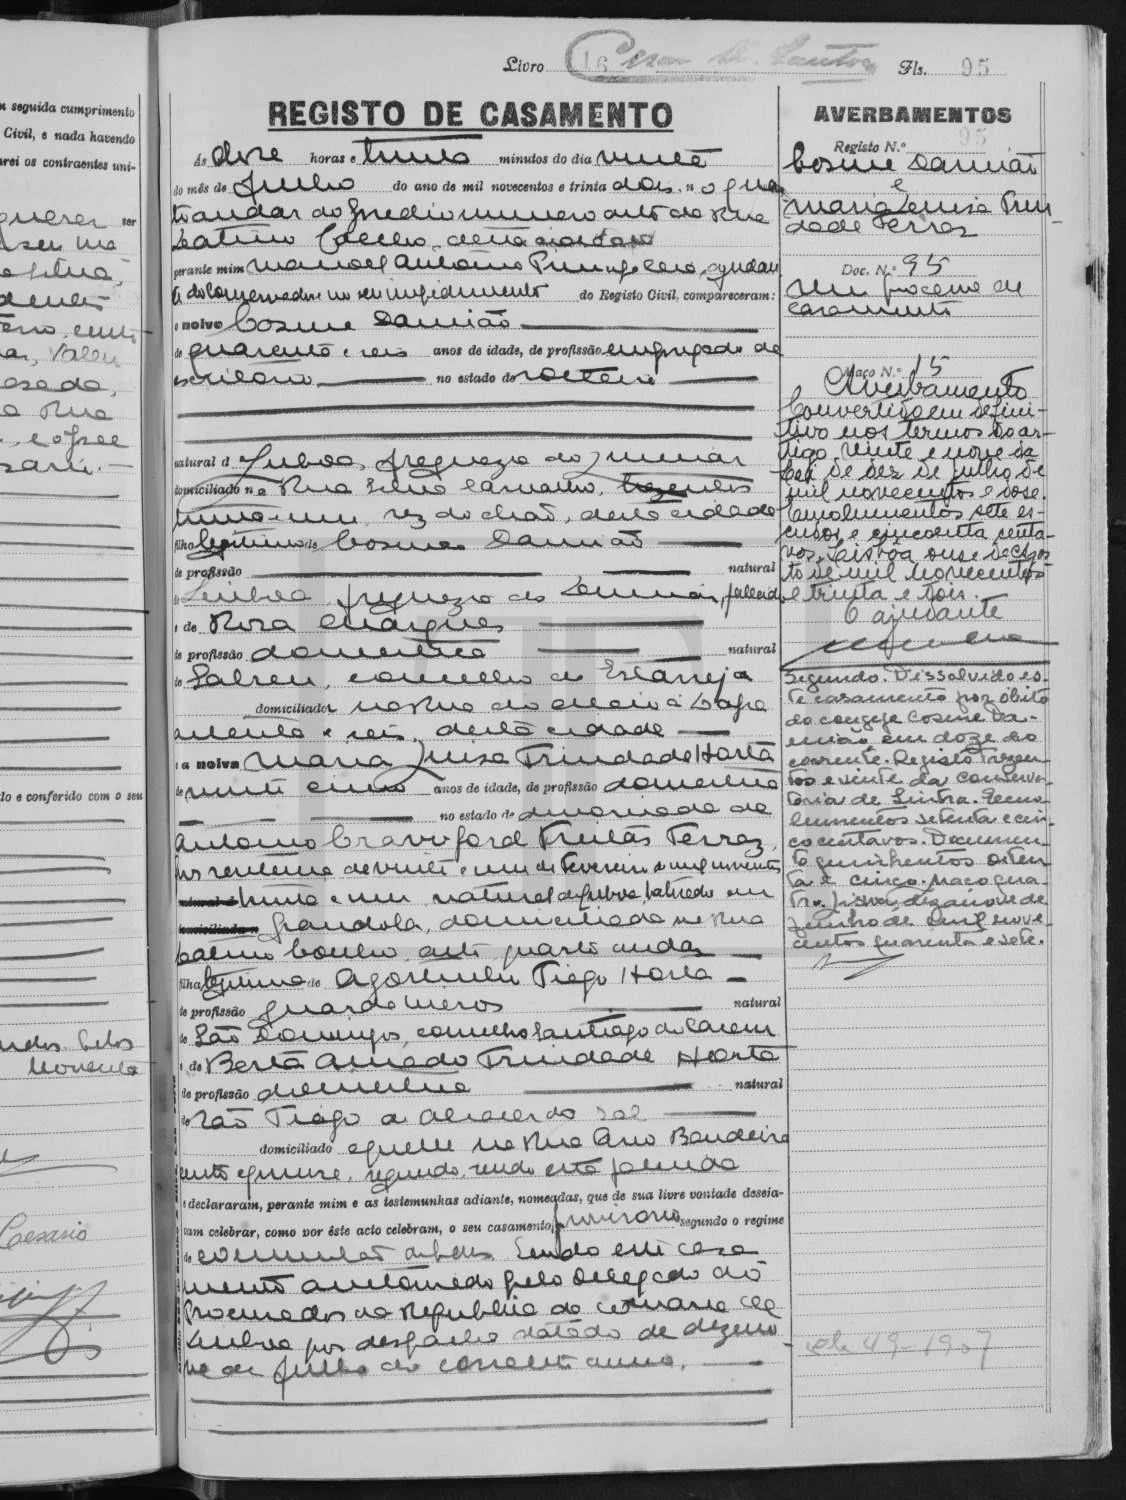 Livro 16 Fls. 95
REGISTO DE CASAMENTO
Ás doze horas e trinta minutos do dia vinte
do mês de Julho do ano de mil novecentos e trinta dois, n o quar
to andar do predio numero oito da Rua
Latino Coelho, desta cidade
perante mim Manoel Antonio ajudan
te do Conservador no seu impedimento do Registo Civil, compareceram:
o noivo Cosme Damião
de quarenta e seis anos de idade, de profissão empregado de
escritorio no estado de solteiro
natural d Lisboa, freguezia do Lumiar
domiciliado na Rua Silva Carvalho, trezentos
trinta e um, rez do chão, desta cidade
filho legitimo de Cosme Damião
de profissão natural
de Lisboa, freguezia do Lumiar, falecido
e de Rosa Marques
de profissão domestica natural
de Salreu, concelho de Estarreja
domiciliada na Rua do Meio á Lapa
oitenta e seis, desta cidade
e a noiva Maria Luisa Trindade Horta
de vinte cinco anos de idade, de profissão domestica
no estado de divorciada de
Antonio Craviford Freitas Ferraz,
por sentença de vinte e um de Fevereiro de mil novecentos
trinta e um, natural de Lisboa, batisado em
Grandola, domiciliada na Rua
Latino Coelho, oito quarto andar
filha legitima de Agostinho Tiago Horta
de profissão guarda livros natural
de São Domingos, concelho Santiago do Cacem
e de Berta Amado Trindade Horta
de profissão domestica natural
de São Tiago de Alcacer do Sal
domiciliado aquelle na Rua Sá da Bandeira
cento e quinze, segundo, sendo esta falecida
e declararam, perante mim e as testemunhas adiante, nomeadas, que de sua livre vontade deseja-
vam celebrar, como por êste acto celebram, o seu casamento, provisorio segundo o regime
de comunhão de bens. Sendo este casa
mento autorisado pelo Delegado do
Procurador da Republica da comarca de
Lisboa por despacho datado de dezeno
ve de Julho do corrente anno.
AVERBAMENTOS
Registo N.º 95
Cosme Damião
e
Maria Luisa Trin-
dade Ferraz
Doc. N.º 95
Um processo de
casamento
Maço N.º 15
Averbamento
Convertido em defini-
tivo nos termos do ar-
tigo vinte e nove da
Lei de dez de Julho de
mil novecentos e doze.
Emolumentos sete es-
cudos e cincoenta centa-
vos. Lisboa onze de Agos
to de mil novecentos
e trinta e dois.
O ajudante
Segundo. Dissolvido es-
te casamento por óbito
do conjuge Cosme Da-
mião, em doze do
corrente. Registo trezen-
tos e vinte da Conserva-
tória de Sintra. Emo-
lumentos setenta e cin-
co centavos. Documen-
to quinhentos oiten-
ta e cinco. Maço qua-
tro. Lisboa, dezanove de
Junho de mil nove-
centos quarenta e sete.
m seguida cumprimento
Civil, e nada havendo
urei os contraentes uni-
querer ser
do e conferido com o seu
Cesario